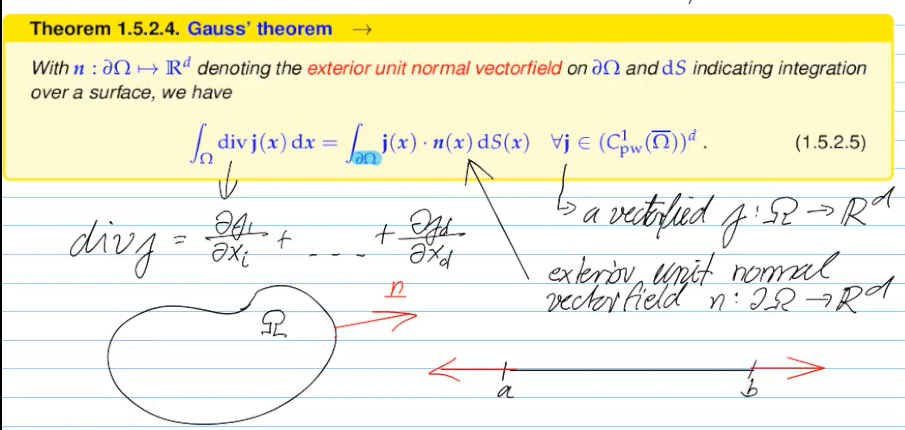 Theorem 1.5.2.4. Gauss' theorem →
With n : ∂Ω ↦ ℝᵈ denoting the exterior unit normal vectorfield on ∂Ω and dS indicating integration
over a surface, we have
∫_Ω div j(x) dx = ∫_∂Ω j(x) · n(x) dS(x) ∀j ∈ (C¹_pw(Ω̅))ᵈ . (1.5.2.5)
↳ a vectorfield j : Ω → ℝᵈ
div j = ∂j₁/∂x₁ + - - - - + ∂j_d/∂x_d
exterior unit normal
vectorfield n : ∂Ω → ℝᵈ
n
Ω
a b